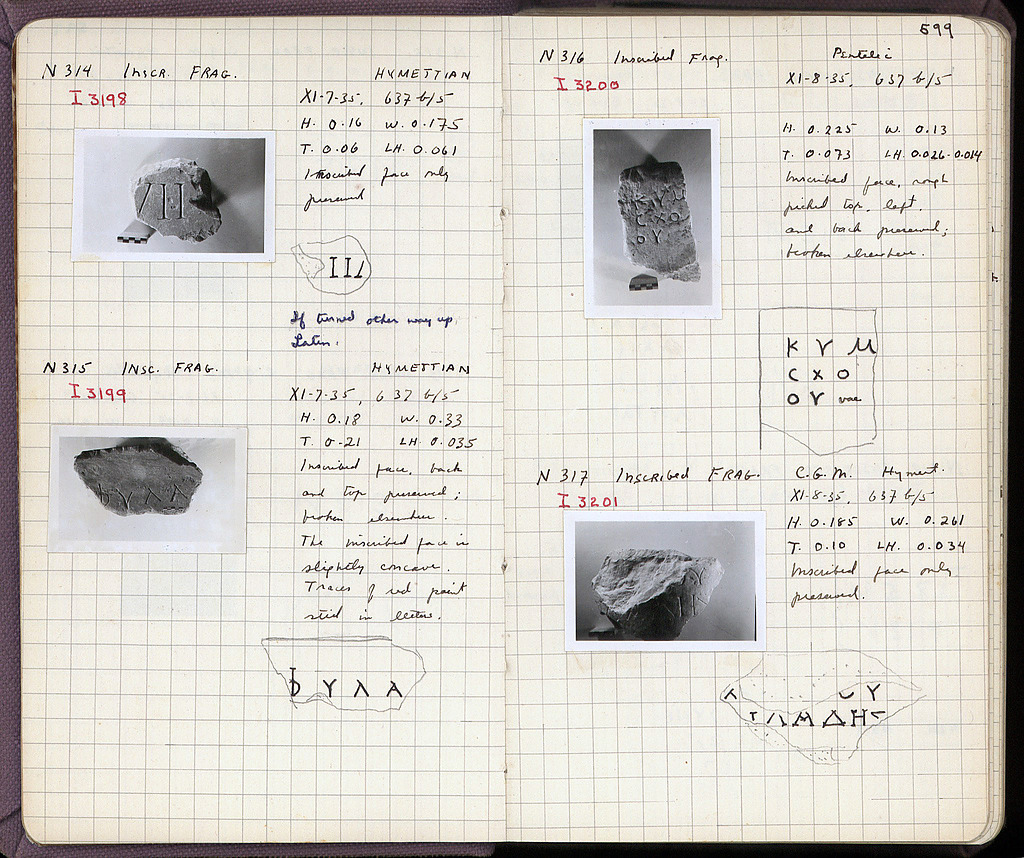 N 314 INSCR. FRAG. HYMETTIAN
I 3198
XI-7-35, 637 b/5
H. 0.16 W. 0.175
T. 0.06 LH. 0.061
Inscribed face only
preserved
If turned other way up
Latin.
N 315 INSC. FRAG. HYMETTIAN
I 3199
XI-7-35, 637 b/5
H. 0.18 W. 0.33
T. 0.21 LH. 0.035
Inscribed face, back
and top preserved;
broken elsewhere.
The inscribed face is
slightly concave.
Traces of red paint
still in letters.
ΥΛΑ
599
N 316 Inscribed Frag. Pentelic
I 3200
XI-8-35, 637 b/5
H. 0.225 W. 0.13
T. 0.073 LH. 0.026-0.014
Inscribed face, rough
picked top, left,
and back preserved;
broken elsewhere.
Κ Υ Μ
C Χ Ο
Ο Υ vac
N 317 Inscribed FRAG. C.G.M. Hymett.
I 3201
XI-8-35, 637 b/5
H. 0.185 W. 0.261
T. 0.10 LH. 0.034
Inscribed face only
preserved.